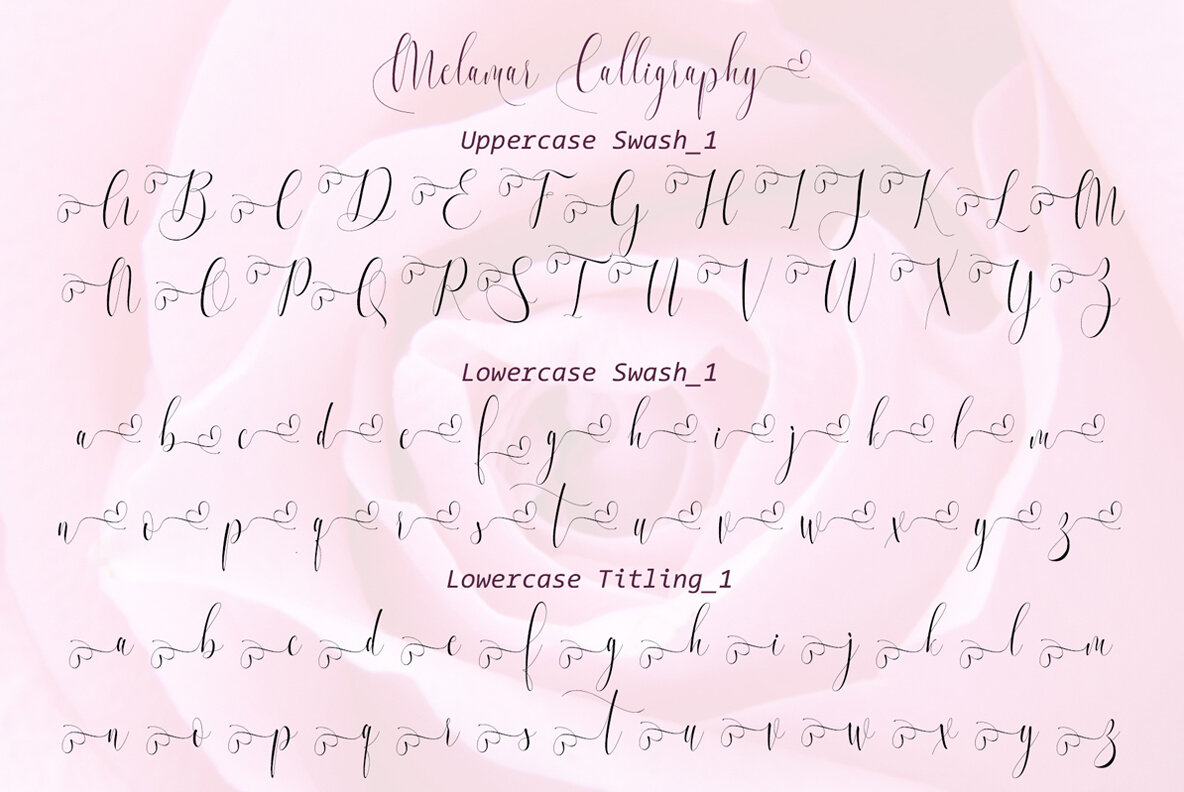 Melamar Calligraphy
Uppercase Swash_1
A B C D E F G H I J K L M
N O P Q R S T U V W X Y Z
Lowercase Swash_1
a b c d e f g h i j k l m
n o p q r s t u v w x y z
Lowercase Titling_1
a b c d e f g h i j k l m
n o p q r s t u v w x y z